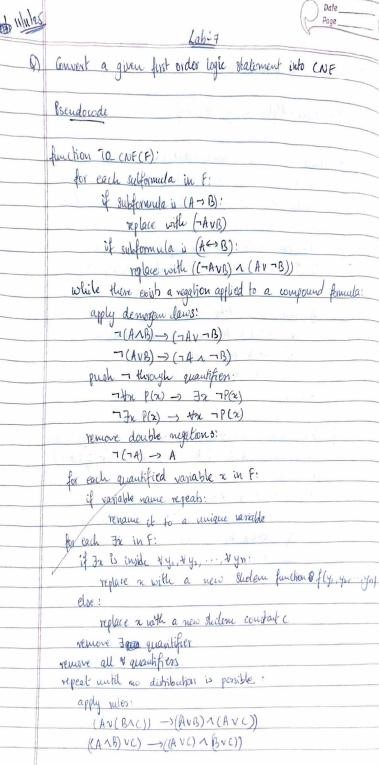 Date
Page
Lab-7
Q) Convert a given first order logic statement into CNF
Pseudocode
function TO CNF(F):
for each subformula in F:
if subformula is (A→B):
replace with (¬A∨B)
if subformula is (A↔B):
replace with ((¬A∨B) ∧ (A∨¬B))
while there exists a negation applied to a compound formula:
apply demorgan laws:
¬(A∧B) → (¬A∨¬B)
¬(A∨B) → (¬A ∧ ¬B)
push ¬ through quantifiers:
¬∀x P(x) → ∃x ¬P(x)
¬∃x P(x) → ∀x ¬P(x)
remove double negations:
¬(¬A) → A
for each quantified variable x in F:
if variable name repeats:
rename it to a unique variable
for each ∃x in F:
if ∃x is inside ∀y₁, ∀y₂, ..., ∀yn:
replace x with a new skolem function f(y₁, y₂, ..yn)
else:
replace x with a new skolem constant c
remove ∃ quantifier
remove all ∀ quantifiers
repeat until no distribution is possible.
apply rules:
(A∨(B∧C)) → (A∨B)∧(A∨C))
((A∧B)∨C) → (A∨C) ∧ (B∨C))